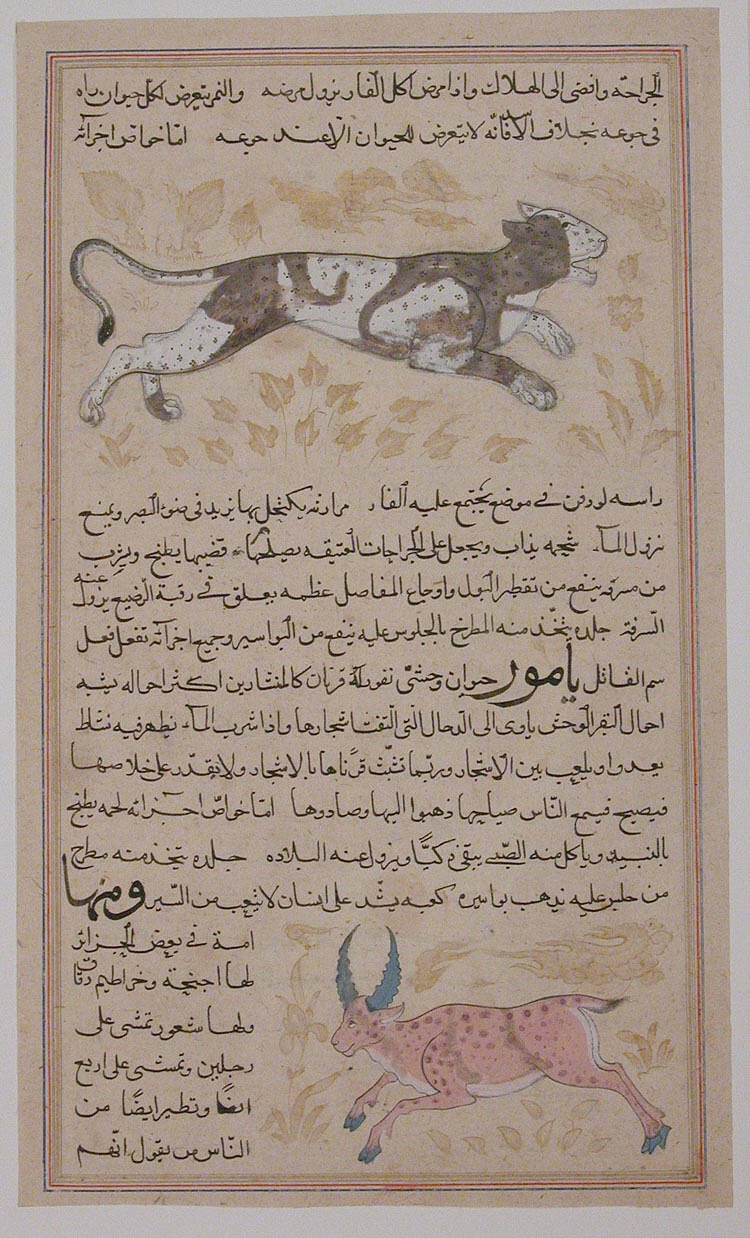 الجراحة وافضى الى الهلاك واذا مرض اكل الفار يزول مرضه والنمر يتعرض لكل حيوان راه
فى جوعه بخلاف الاسد فانه لا يتعرض للحيوان الا عند جوعه امّا خواص اجزائه
راسه لو دفن فى موضع يجتمع عليه الفار مرارته يكتحل بها يزيد فى ضوء البصر ويمنع
نزول الماء شحمه يذاب ويجعل على الجراحات العتيقه يصلحها قضيبها يطبخ ويشرب
من مرقه ينفع من تقطير البول واوجاع المفاصل عظمه يعلق فى رقبة الرضيع يزول عنه
جلده يتخذ منه المطرح بالجلوس عليه ينفع من البواسير وجميع اجزائه تفعل فعل
سم القاتل يامور حيوان وحشى نفور له قرنان كالمنشارين اكثر احواله يشبه
احوال البقر الوحش ياوى الى الدحال التى التفت اشجارها واذا شرب الماء يظهر فيه نشاط
يعدوا ويلعب بين الاشجار وربما تشبث قرناها بالاشجار ولا يقدر على خلاصها
فيصيح فيسمع الناس صياحها ذهبوا اليها وصادوها امّا خواصّ اجزائه لحمه يطبخ
بالنبيذ وياكل منه الصبى يبقى ذكيّا ويزول عنه البلاده جلده يتخذ منه مطرح
من جلس عليه يذهب بواسيره كعبه يشد على انسان لا يتعب من السير ومنها
امة فى بعض الجزائر
لها اجنحة وخراطيم دقاق
ولها شعور تمشى على
رجلين وتمشى على اربع
ايضا وتطير ايضًا من
الناس من يقول انّهم